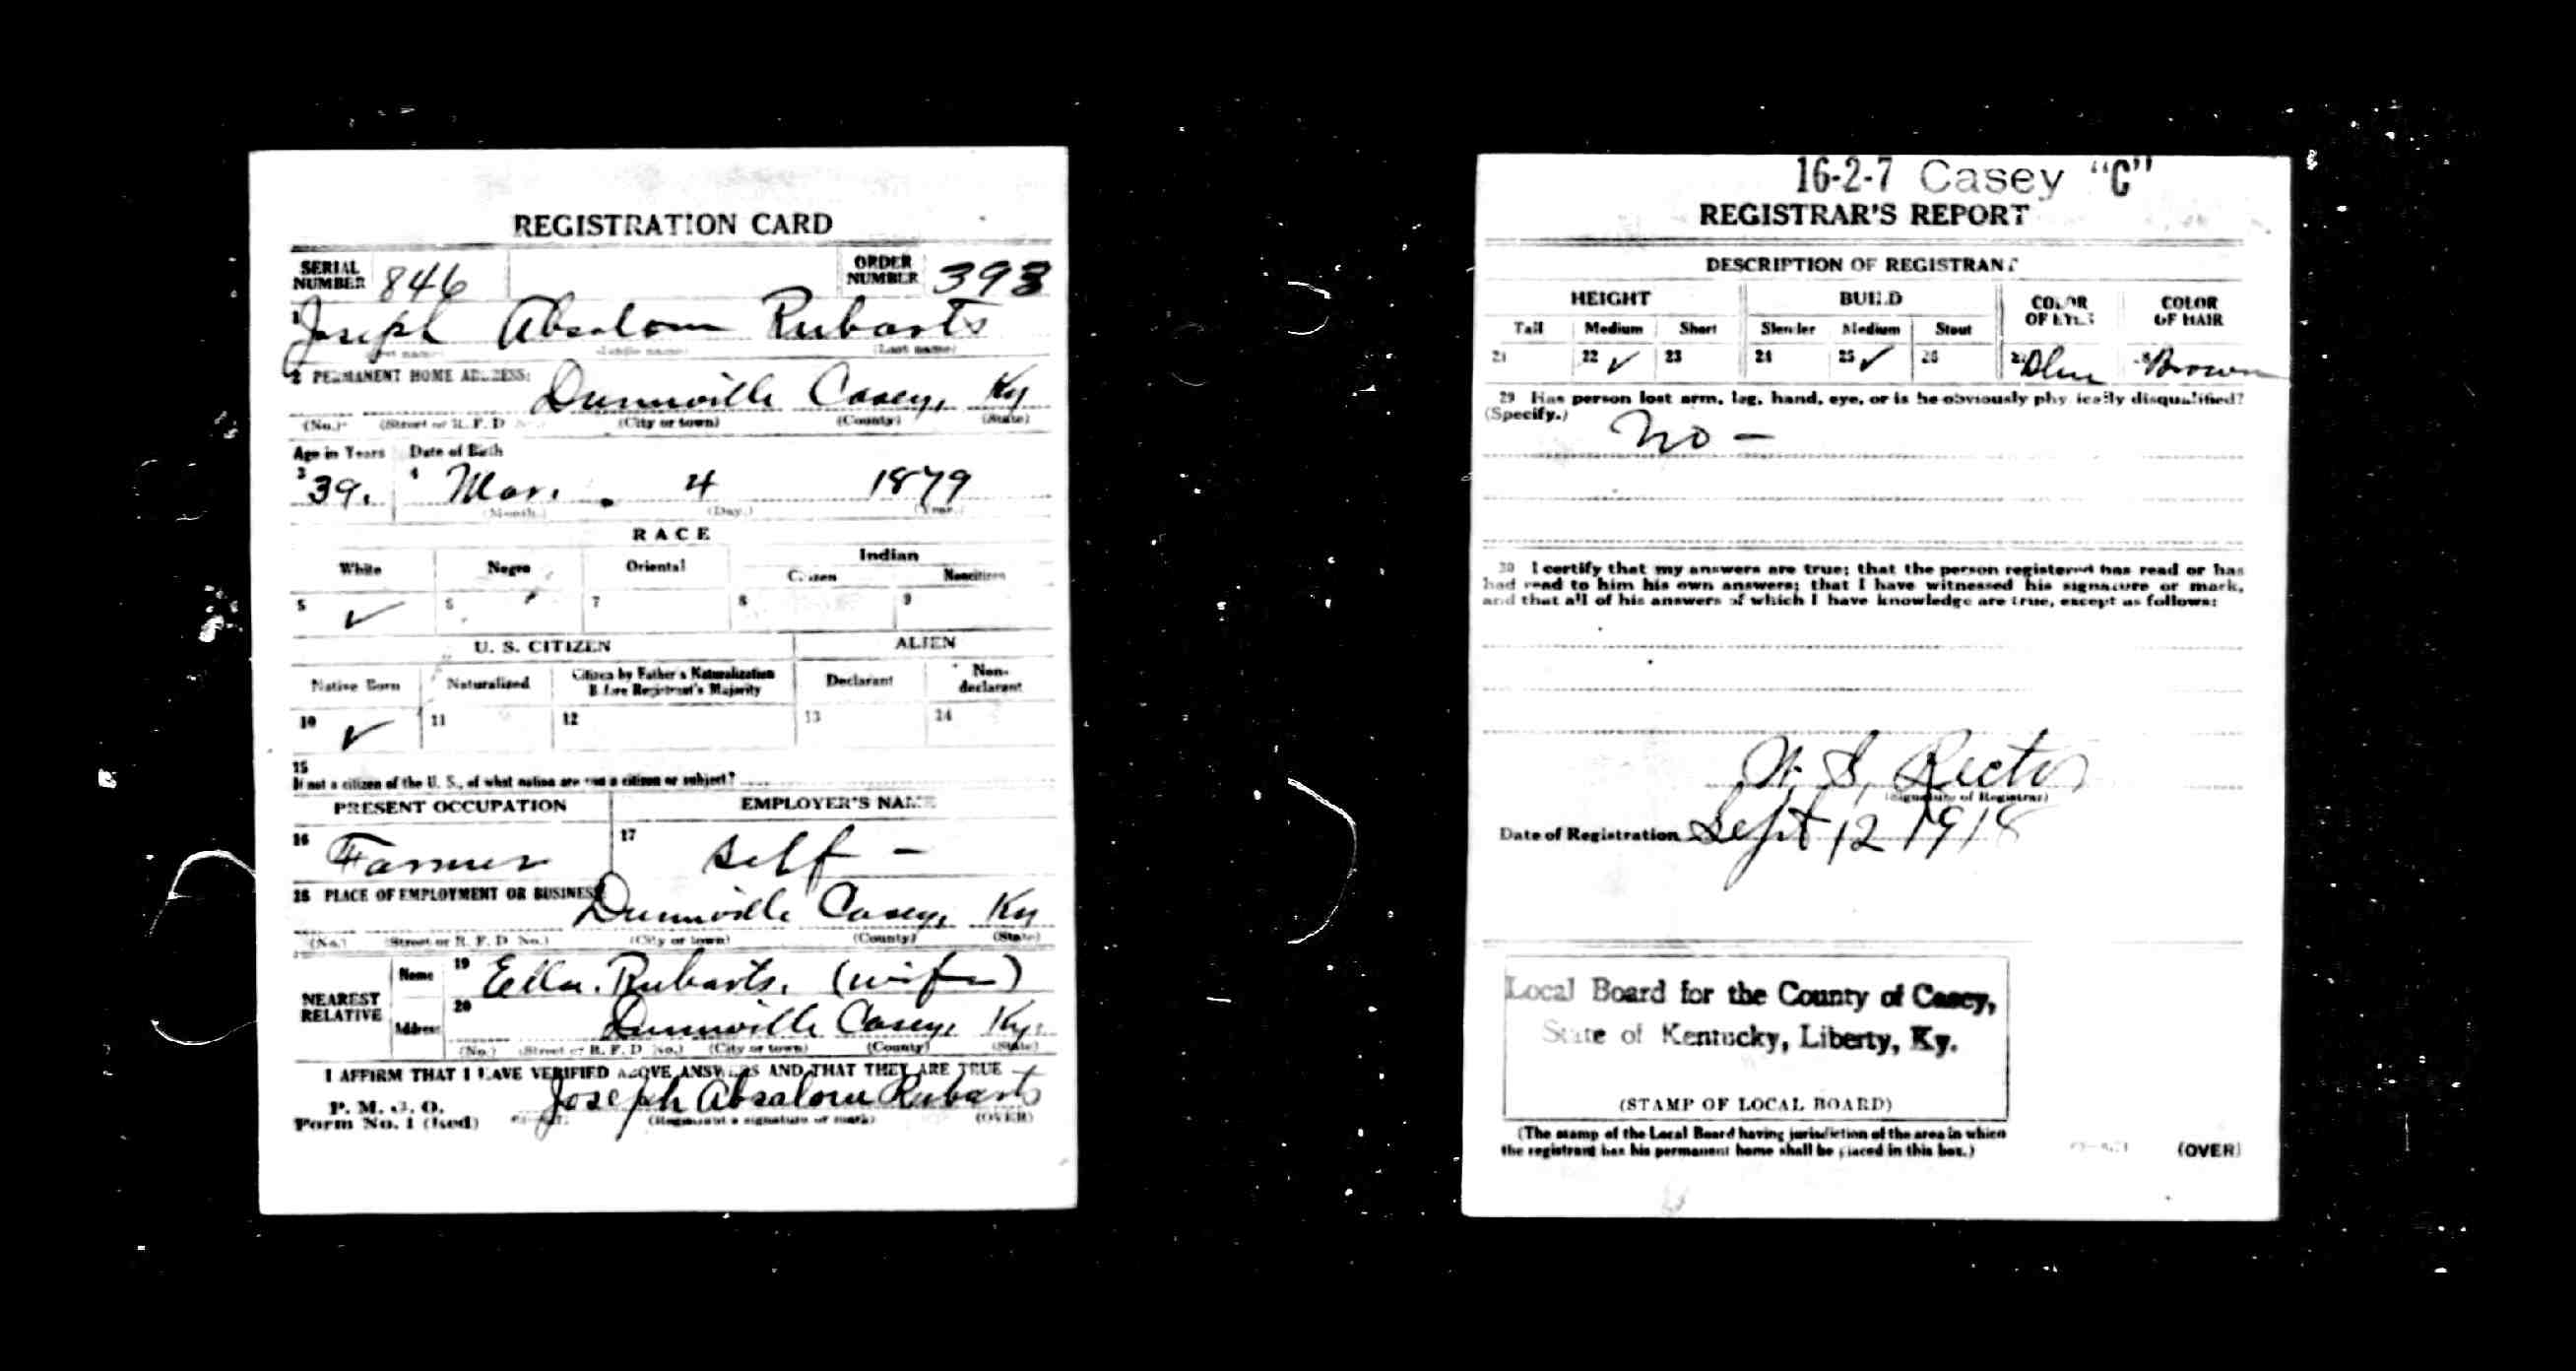 REGISTRATION CARD
SERIAL NUMBER 846 ORDER NUMBER 393
1 Joseph Absalom Rubarts
(Middle name) (Last name)
2 PERMANENT HOME ADDRESS: Dunnville Casey, Ky
(No.) (Street or R. F. D. (City or town) (County) (State)
Age in Years Date of Birth
3 39. 4 Mar. 4 1879
(Month.) (Day.) (Year.)
RACE
White Negro Oriental Indian
Citizen Noncitizen
5 ✓ 6 7 8 9
U. S. CITIZEN ALIEN
Native Born Naturalized Citizen by Father's Naturalization Before Registrant's Majority Declarant Non-declarant
10 ✓ 11 12 13 14
15
If not a citizen of the U. S., of what nation are you a citizen or subject?
PRESENT OCCUPATION EMPLOYER'S NAME
16 Farmer 17 self -
18 PLACE OF EMPLOYMENT OR BUSINESS Dunnville Casey, Ky
(No.) (Street or R. F. D. No.) (City or town) (County) (State)
NEAREST RELATIVE Name 19 Ella. Rubarts. (wife)
Address 20 Dunnville Casey, Ky.
(No.) (Street or R. F. D. No.) (City or town) (County) (State)
I AFFIRM THAT I HAVE VERIFIED ABOVE ANSWERS AND THAT THEY ARE TRUE
P. M. G. O.
Form No. 1 (Red) Joseph Absalom Rubarts
(Registrant's signature or mark) (OVER)
16-2-7 Casey "C"
REGISTRAR'S REPORT
DESCRIPTION OF REGISTRANT
HEIGHT BUILD COLOR OF EYES COLOR OF HAIR
Tall Medium Short Slender Medium Stout
21 22 ✓ 23 24 25 ✓ 26 27 Blue 28 Brown
29 Has person lost arm, leg, hand, eye, or is he obviously physically disqualified?
(Specify.) no -
30 I certify that my answers are true; that the person registered has read or has
had read to him his own answers; that I have witnessed his signature or mark,
and that all of his answers of which I have knowledge are true, except as follows:
(Signature of Registrar)
Date of Registration Sept 12 1918
Local Board for the County of Casey,
State of Kentucky, Liberty, Ky.
(STAMP OF LOCAL BOARD)
(The stamp of the Local Board having jurisdiction of the area in which
the registrant has his permanent home shall be placed in this box.)
(OVER)